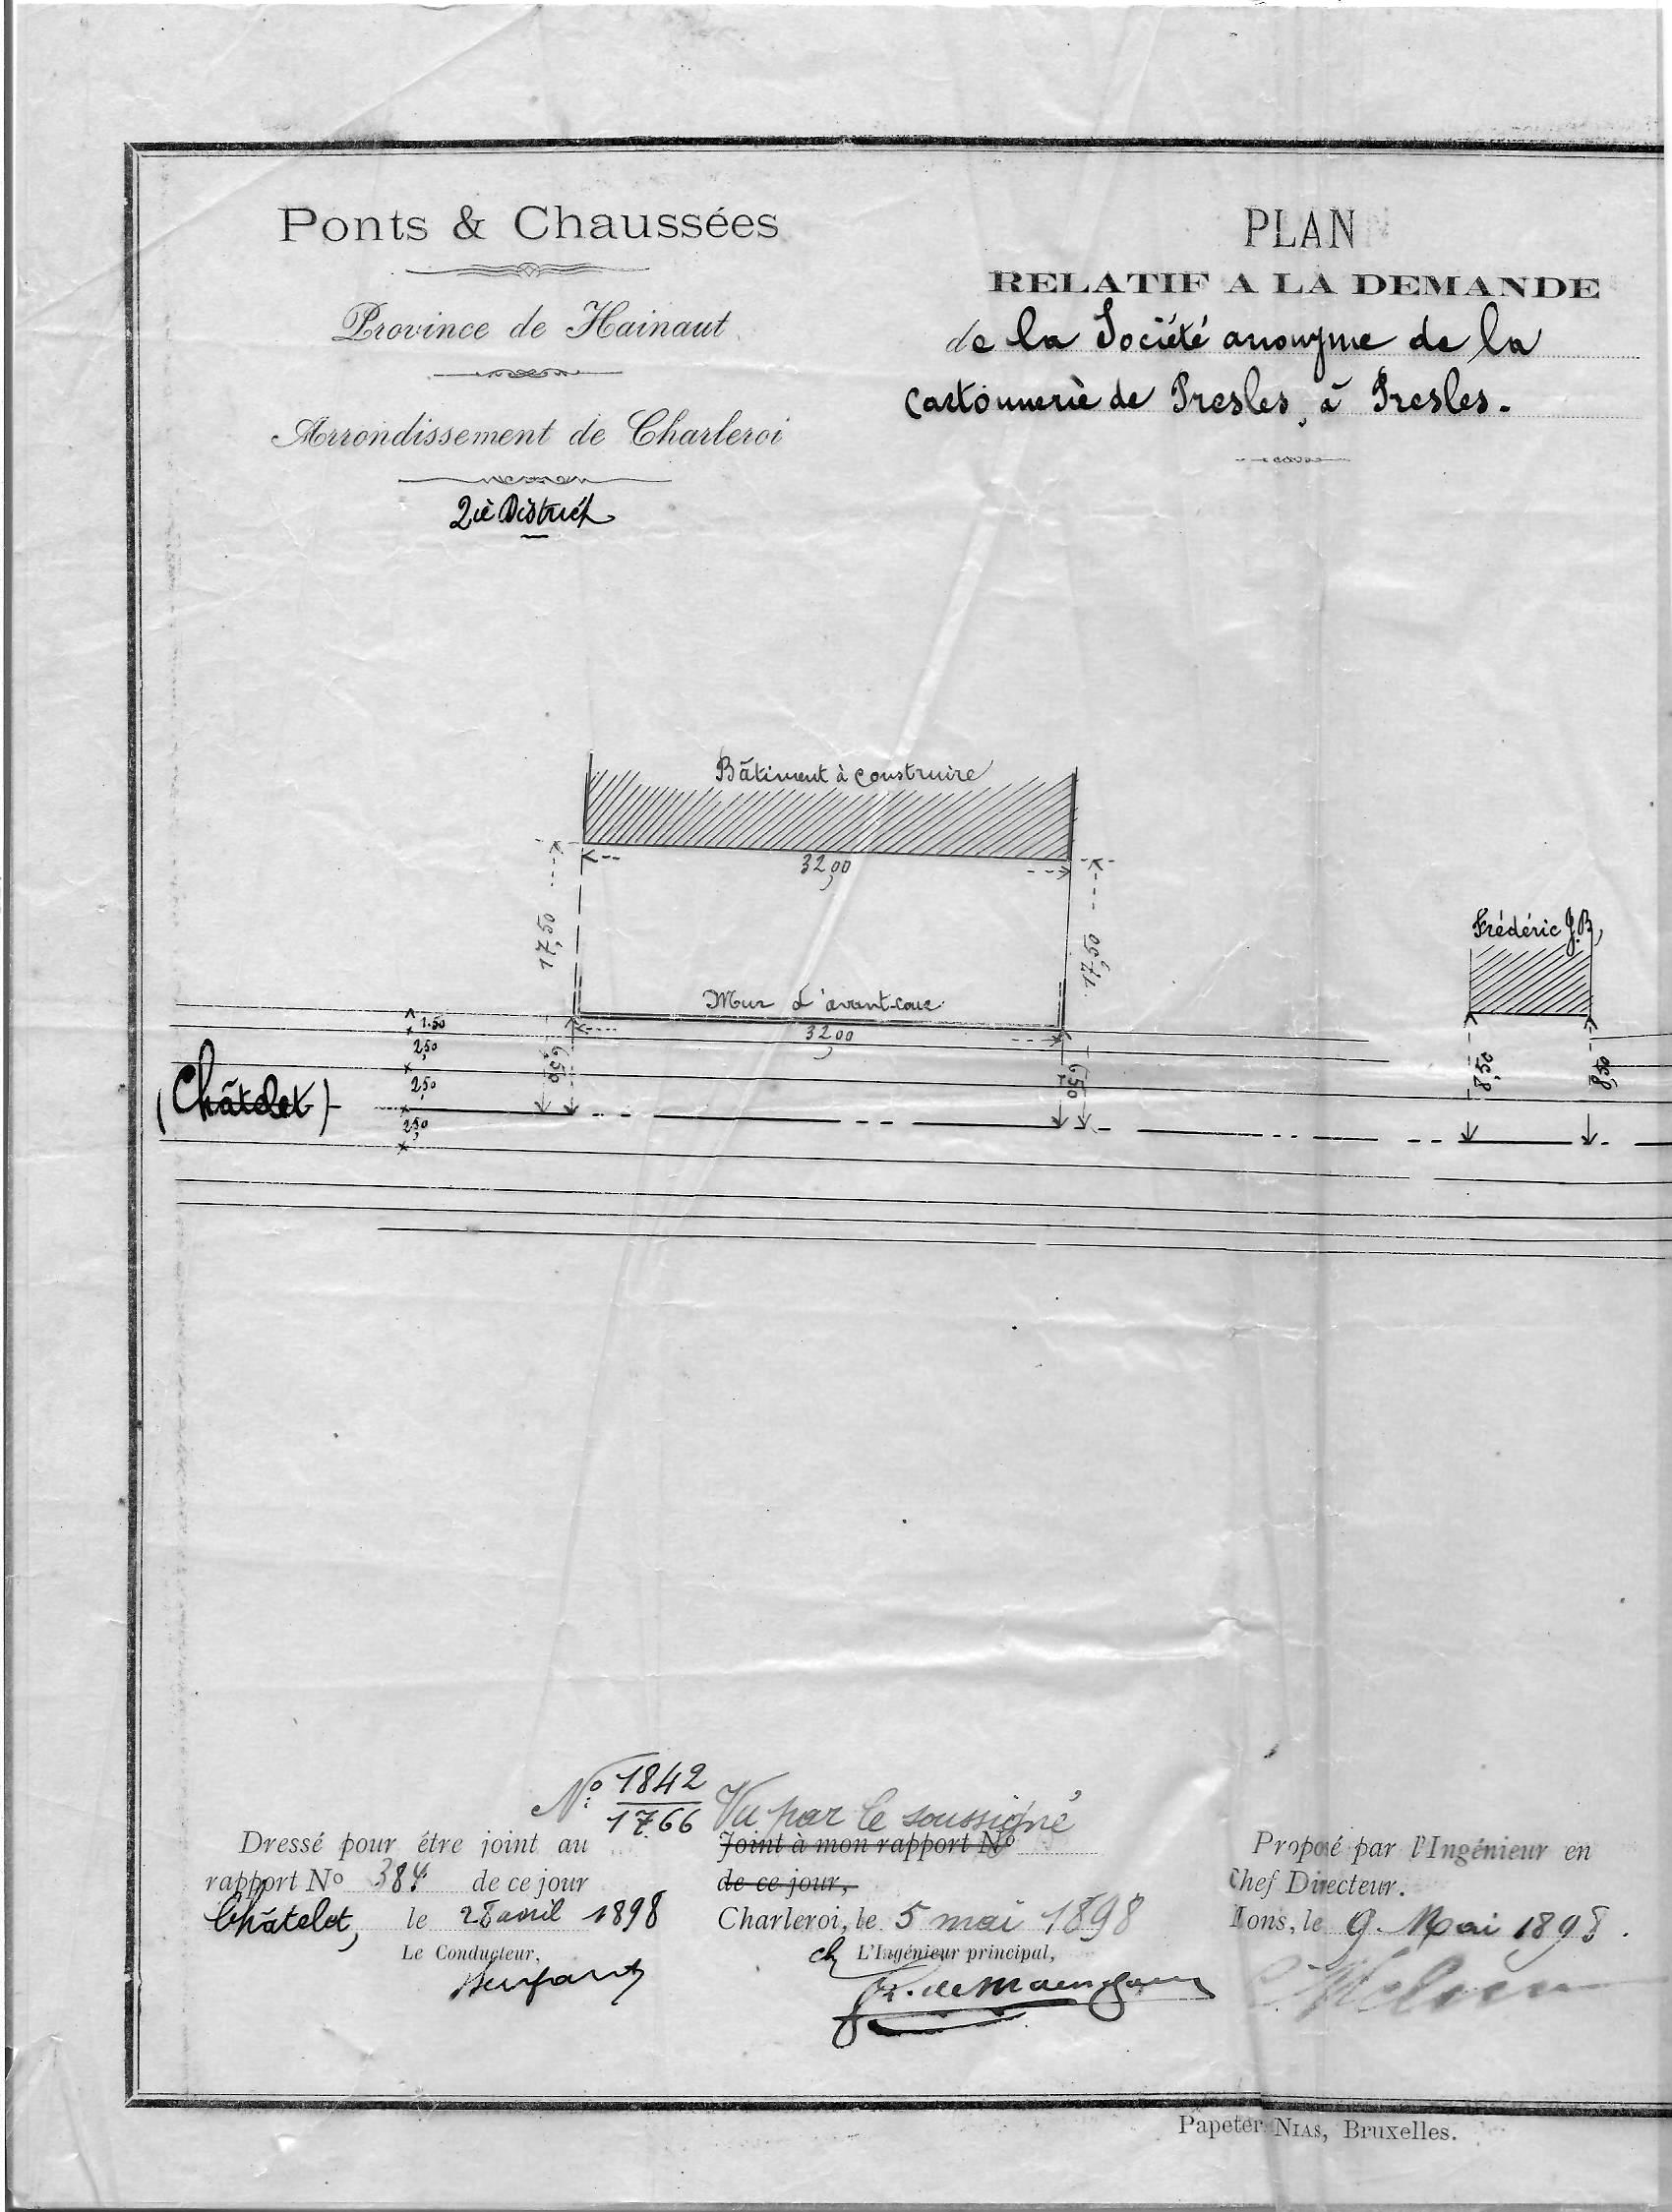 Ponts & Chaussées
Province de Hainaut
Arrondissement de Charleroi
2iè District
PLAN
RELATIF A LA DEMANDE
de la Société anonyme de la
Cartonnerie de Presles, à Presles.
Bâtiment à construire
32,00
17,50
17,50
Frédéric J.B,
Mur d'avant-cour
32,00
1.50
2,50
2,50
2,50
6,50
6,50
8,50
8,50
(Châtelet)
No: 1842
1766
Vu par le soussigné
Dressé pour être joint au
rapport No 384 de ce jour
Châtelet, le 28 avril 1898
Le Conducteur,
Joint à mon rapport No
de ce jour,
Charleroi, le 5 mai 1898
L'Ingénieur principal,
Proposé par l'Ingénieur en
Chef Directeur.
Mons, le 9 Mai 1898.
Papeter. NIAS, Bruxelles.